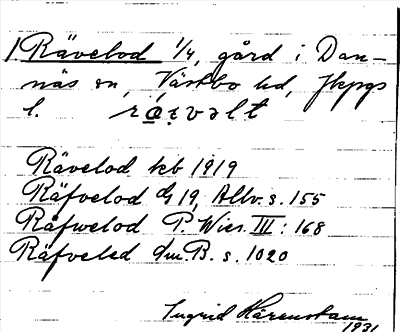 1. Rävelod 1/4, gård i Dan-
näs sn, Västbo hd, Jkpgs
l.
Rävelod kb 1919
Räfvelod G 19, Allv. s. 155
Räfwelod P. Wies. III : 168
Räfveled dm. B. s. 1020
Ingrid Härenstam
1931